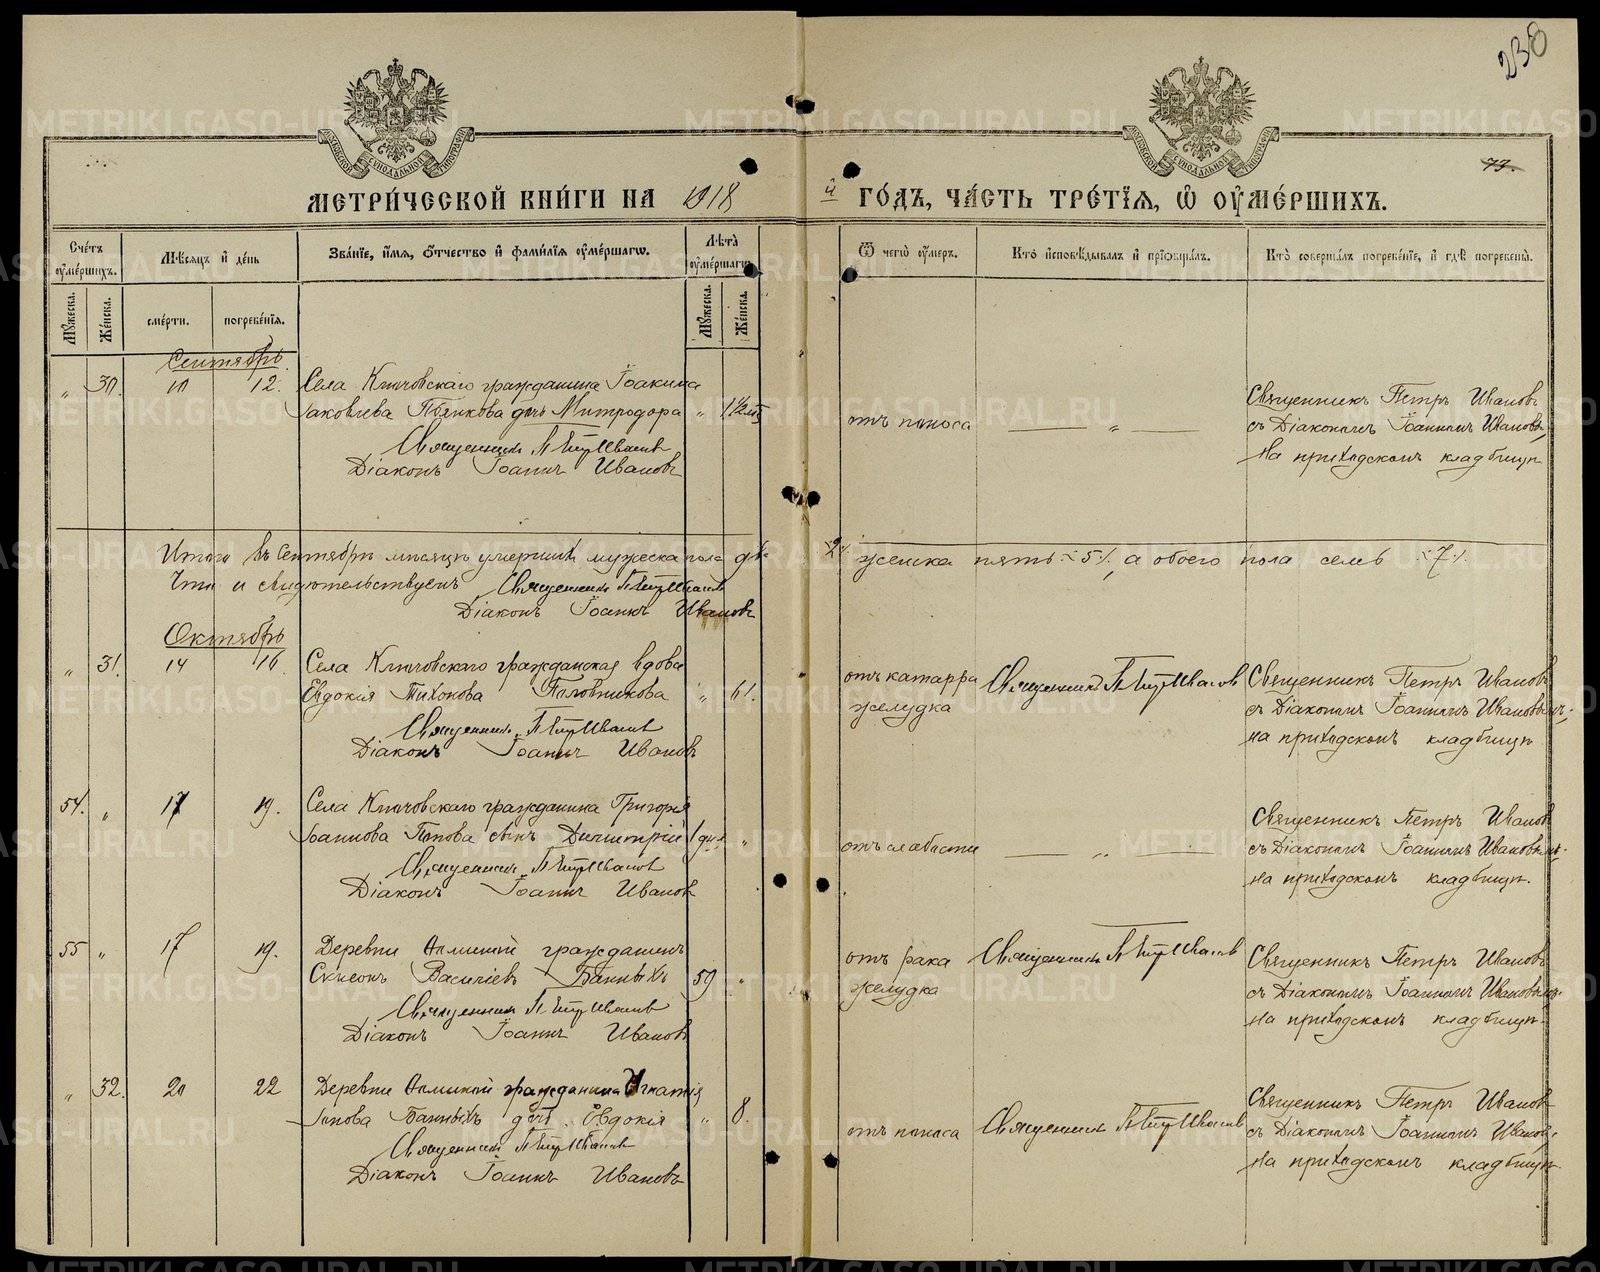 238
77.
МЕТРИ́ЧЕСКОЙ КНИ́ГИ НА 1918 й ГО́ДЪ, ЧА́СТЬ ТРЕ́ТЇѦ, Ѿ ОУ҆МЕ́РШИХЪ.
Сче́тъ оу҆ме́ршихъ.
Мѣ́сѧцъ и҆ де́нь
Зва́нїе, и҆́мѧ, ѻ҆́тчество и҆ фами́лїѧ оу҆ме́ршагѡ.
Лѣ́та оу҆ме́ршагѡ.
Ѿ чегѡ̀ оу҆́меръ.
Кто̀ и҆сповѣ́дывалъ и҆ прїѡбща́лъ.
Кто̀ соверша́лъ погребе́нїе, и҆ гдѣ̀ погребены̀.
Мꙋ́жеска.
Же́нска.
сме́рти.
погребе́нїѧ.
Мꙋ́жеска.
Же́нска.
Сентябрь.
" 30. 10 12. Села Ключовскаго гражданина Іоакима
Іаковлева Пьянкова дочь Митродора "
Священникъ Петръ Ивановъ
Діаконъ Іоаннъ Ивановъ
отъ поноса
— " —
Священникъ Петръ Ивановъ
съ Діакономъ Іоанномъ Ивановымъ,
На приходскомъ кладбищѣ
Итого въ Сентябрѣ мѣсяцѣ умершихъ мужеска пола два 2, женска пять 5, а обоего пола семь 7.
Что и свидѣтельствуемъ Священникъ Петръ Ивановъ
Діаконъ Іоаннъ Ивановъ
Октябрь
" 31. 14 16. Села Ключовскаго гражданская вдова
Евдокія Тихонова Половникова " 61.
Священникъ Петръ Ивановъ
Діаконъ Іоаннъ Ивановъ
отъ катарра
желудка
Священникъ Петръ Ивановъ
Священникъ Петръ Ивановъ
съ Діакономъ Іоанномъ Ивановымъ;
на приходскомъ кладбищѣ
54. " 17 19. Села Ключовскаго гражданина Григорія
Іоаннова Попова сынъ Димитрій 1 дня "
Священникъ Петръ Ивановъ
Діаконъ Іоаннъ Ивановъ
отъ слабости
— " —
Священникъ Петръ Ивановъ
съ Діакономъ Іоанномъ Ивановымъ.
На приходскомъ кладбищѣ.
55 " 17 19. Деревни гражданинъ
Симеонъ Василіевъ Банныхъ 59 "
Священникъ Петръ Ивановъ
Діаконъ Іоаннъ Ивановъ
отъ рака
желудка
Священникъ Петръ Ивановъ
Священникъ Петръ Ивановъ
съ Діакономъ Іоанномъ Ивановымъ.
На приходскомъ кладбищѣ.
" 32. 20 22 Деревни гражданина Игнатія
Банныхъ дочь Евдокія " 8.
Священникъ Петръ Ивановъ
Діаконъ Іоаннъ Ивановъ
отъ поноса
Священникъ Петръ Ивановъ
Священникъ Петръ Ивановъ
съ Діакономъ Іоанномъ Ивановымъ
На приходскомъ кладбищѣ
METRIKI.GASO-URAL.RU